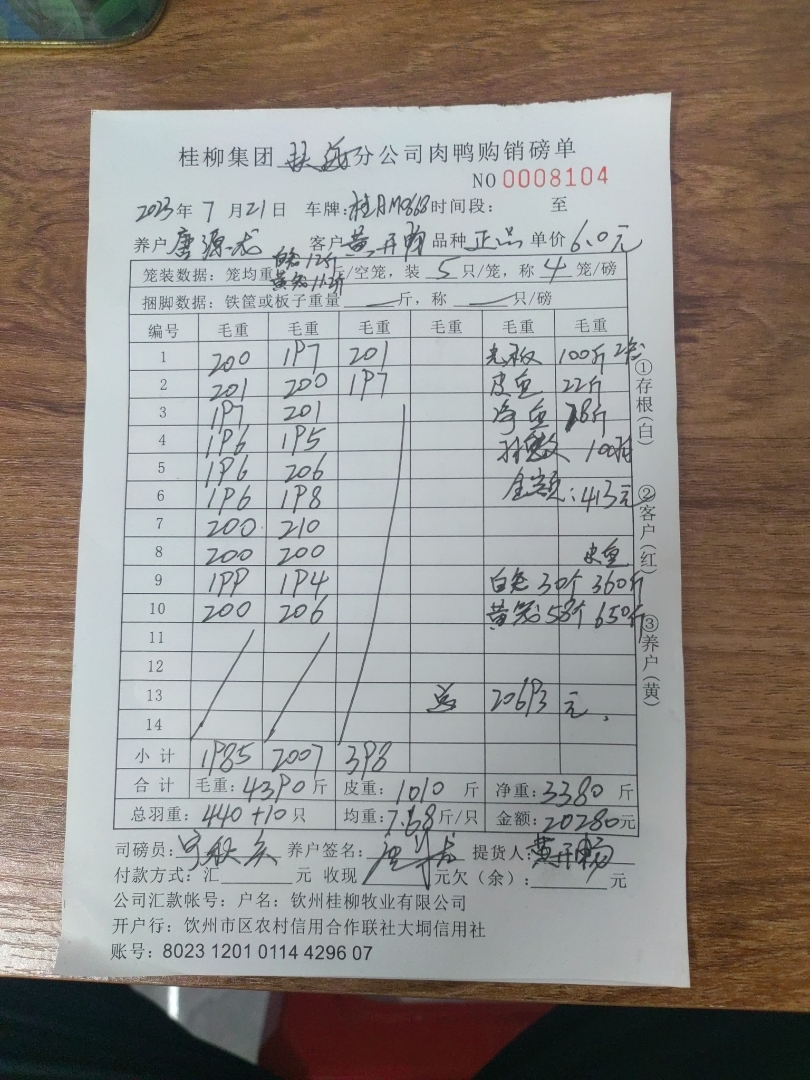 桂柳集团扶绥分公司肉鸭购销磅单
NO 0008104
2023年 7 月 21 日 车牌:桂AM868 时间段: 至
养户 唐源龙 客户 黄开 品种 正品 单价 6.0元
笼装数据: 笼均重 白笼12斤 黄笼11.2斤 斤/空笼, 装 5 只/笼, 称 4 笼/磅
捆脚数据: 铁筐或板子重量 — 斤, 称 — 只/磅
编号 毛重 毛重 毛重 毛重 毛重 毛重
1 200 197 201 100斤 2笼
2 201 200 197 皮重 22斤
3 197 201 净重 78斤
4 196 195 羽数 10羽
5 196 206
6 196 198 金额: 413元
7 200 210
8 200 200 皮重
9 199 194 白笼 30个 360斤
10 200 206 黄笼 58个 650斤
11
12
13 总 20693 元.
14
小计 1985 2007 398
合计 毛重: 4390 斤 皮重: 1010 斤 净重: 3380 斤
总羽重: 440+10 只 均重: 7.68 斤/只 金额: 20280元
司磅员: 养户签名: 提货人: 黄开
付款方式: 汇 元 收现 元欠(余): 元
公司汇款帐号: 户名: 钦州桂柳牧业有限公司
开户行: 钦州市区农村信用合作联社大垌信用社
账号: 8023 1201 0114 4296 07
①存根(白) ②客户(红) ③养户(黄)